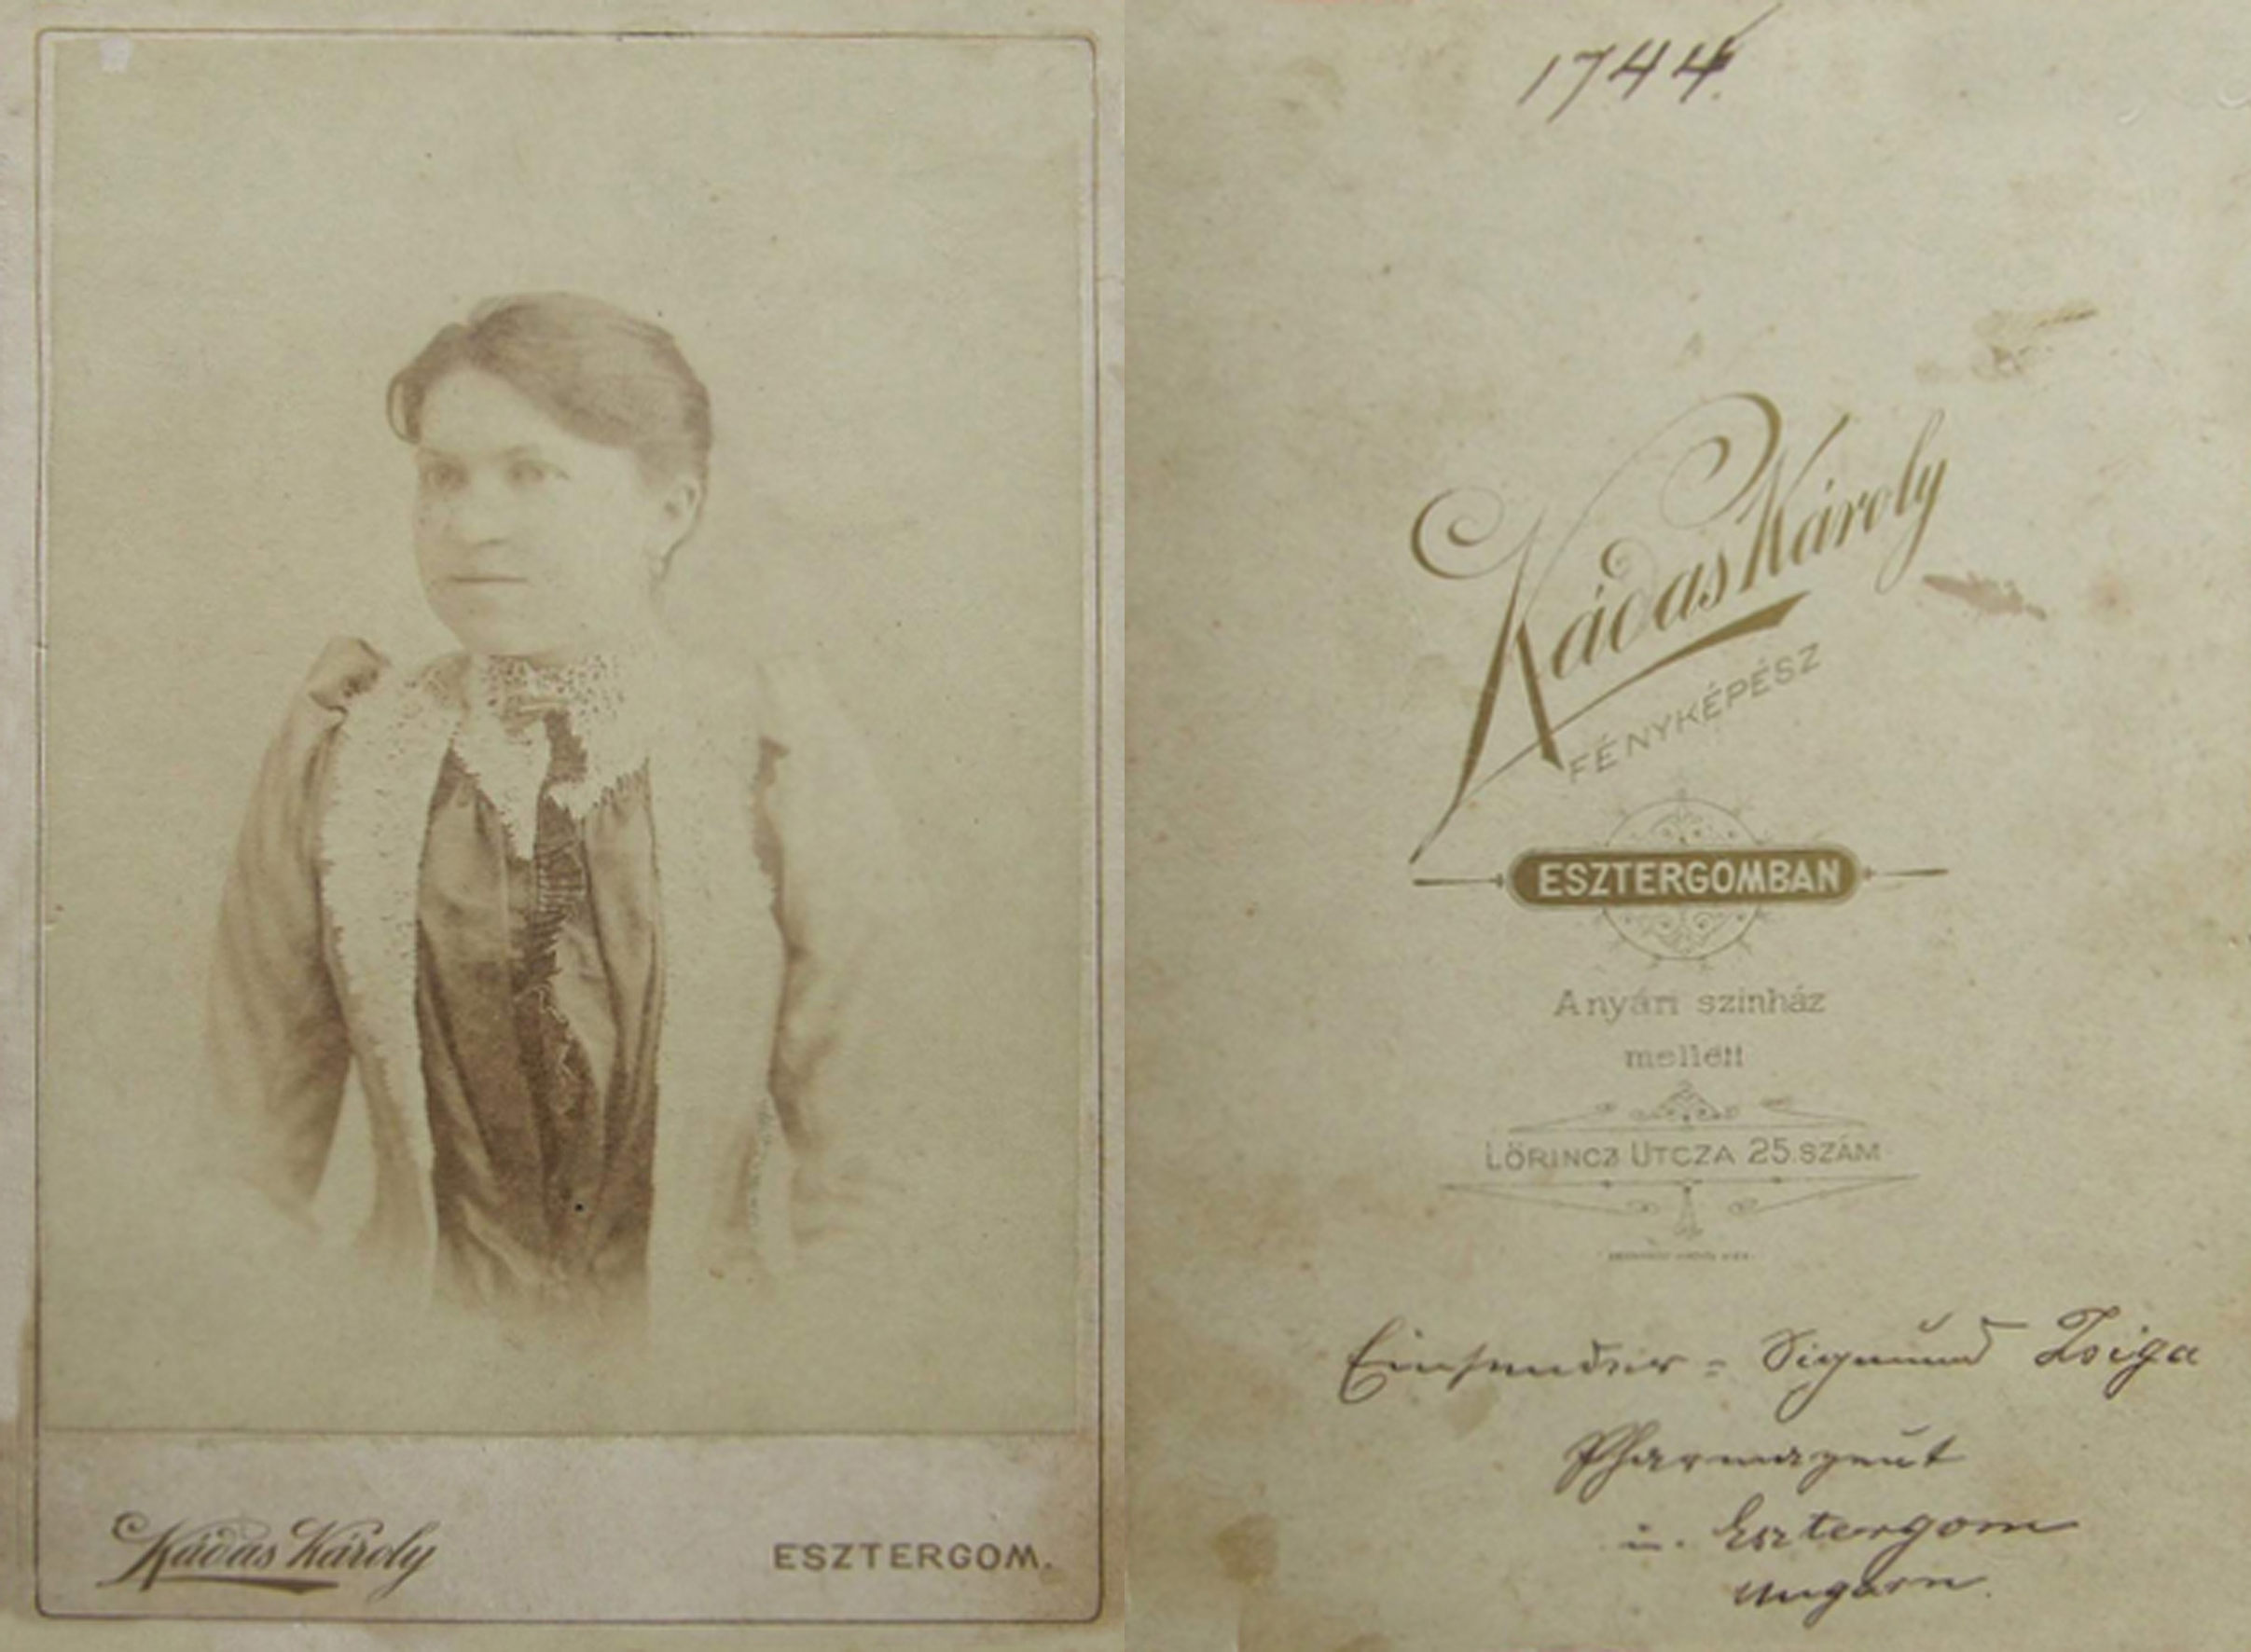 Kádas Károly
ESZTERGOM.
1744.
Kádas Károly
FÉNYKÉPÉSZ
ESZTERGOMBAN
A nyári szinház
mellett
LŐRINCZ UTCZA 25.SZÁM
Einsender = Sigmund Zsiga
Pharmazeut
in. Esztergom
Ungarn.